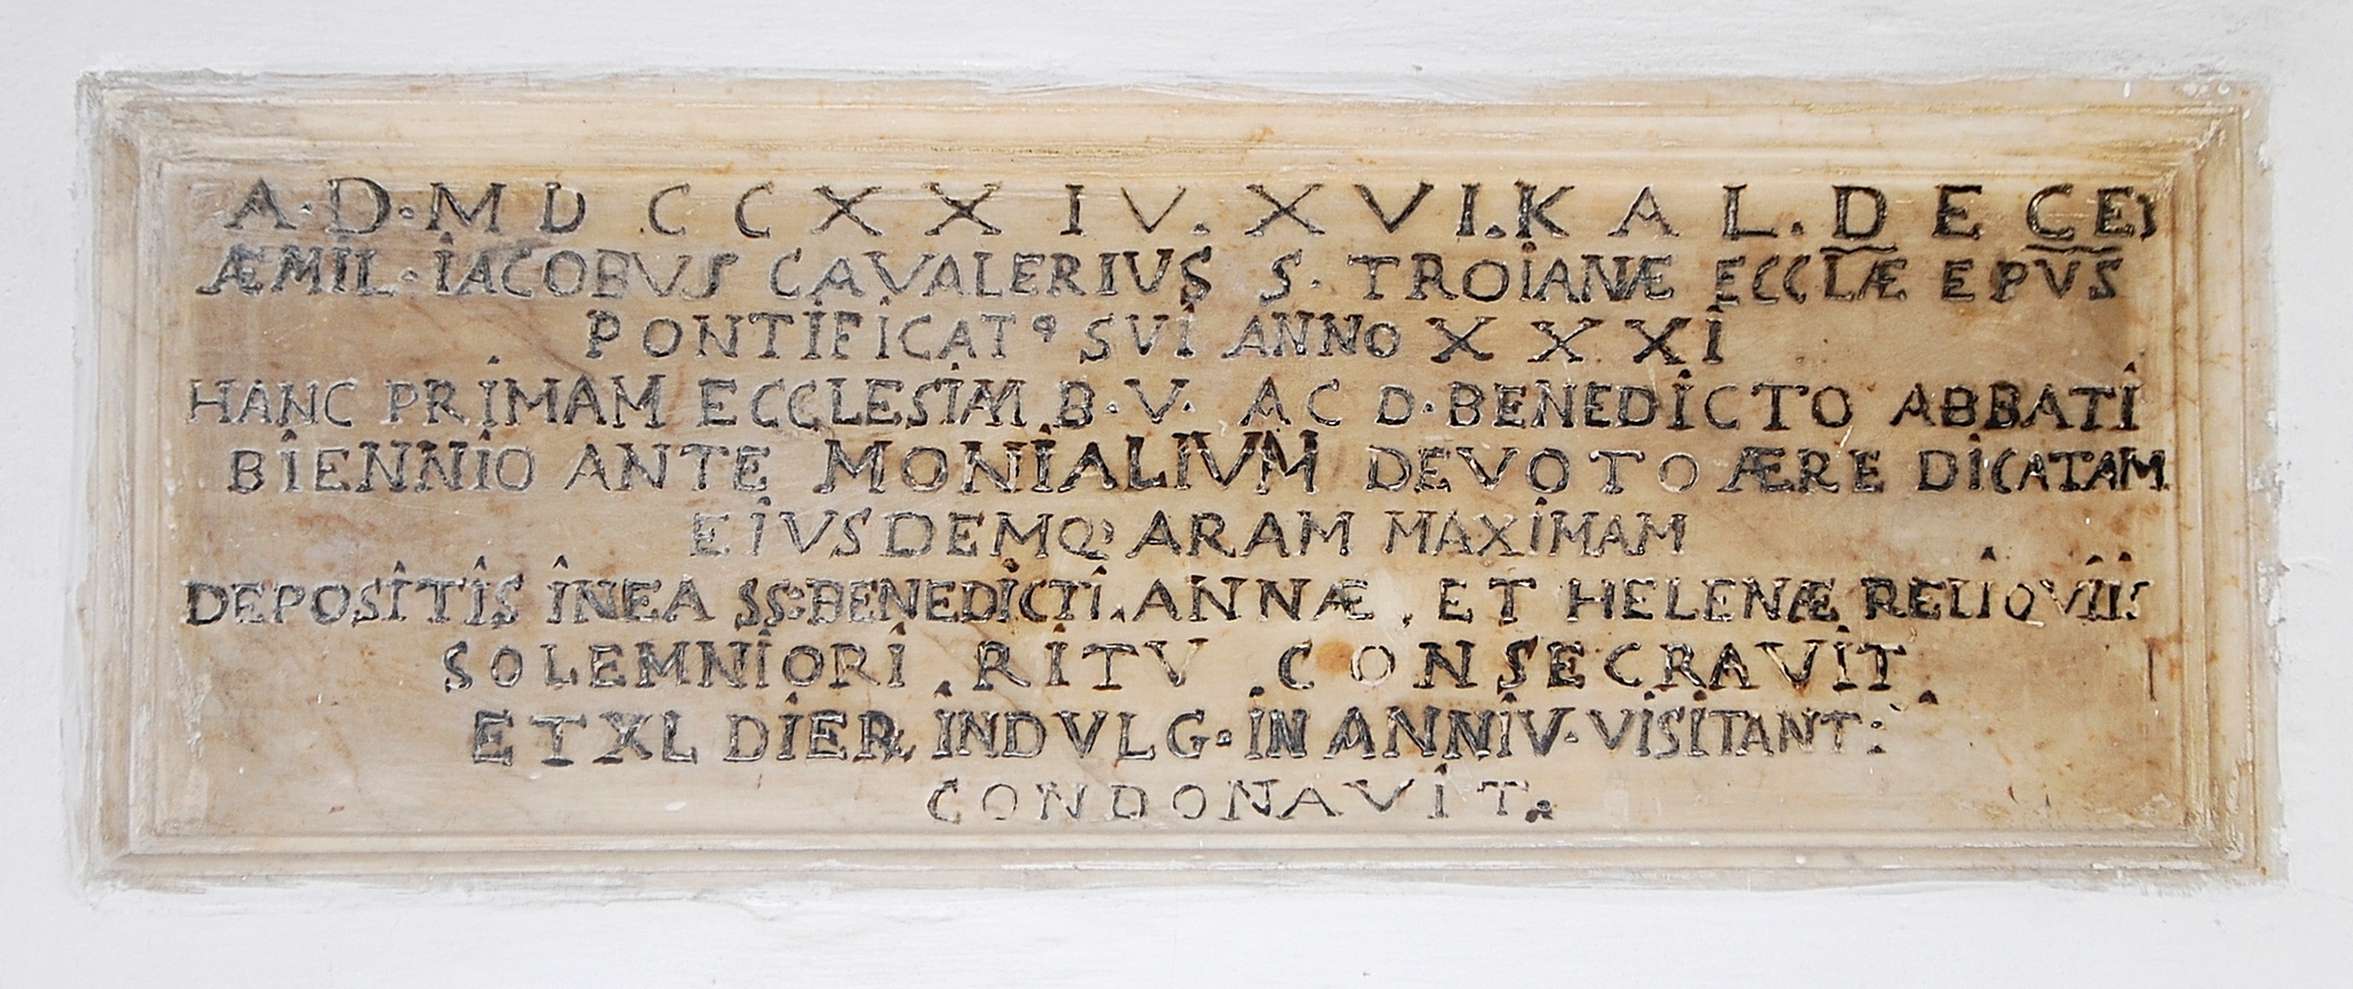 A·D·MDCCXXIV.XVI.KAL.DECEƎ
ÆMIL·IACOBVS CAVALERIVS S· TROIANÆ ECCLÆ EPVS
PONTIFICATꝰ SVI ANNO XXXI
HANC PRIMAM ECCLESIAM B·V· AC D·BENEDICTO ABBATI
BIENNIO ANTE MONIALIVM DEVOTO ÆRE DICATAM
EIVSDEMQ; ARAM MAXIMAM
DEPOSITIS IN EA SS:BENEDICTI, ANNÆ, ET HELENÆ RELIQVIIS
SOLEMNIORI RITV CONSECRAVIT
ET XL DIER, INDVLG· IN ANNIV· VISITANT:
CONDONAVIT.